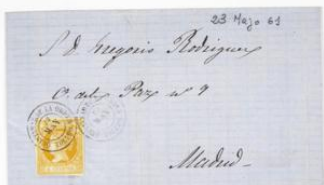 23 Mayo 61
S. D. Gregorio Rodriguez
C. de la Paz nº 9
Madrid